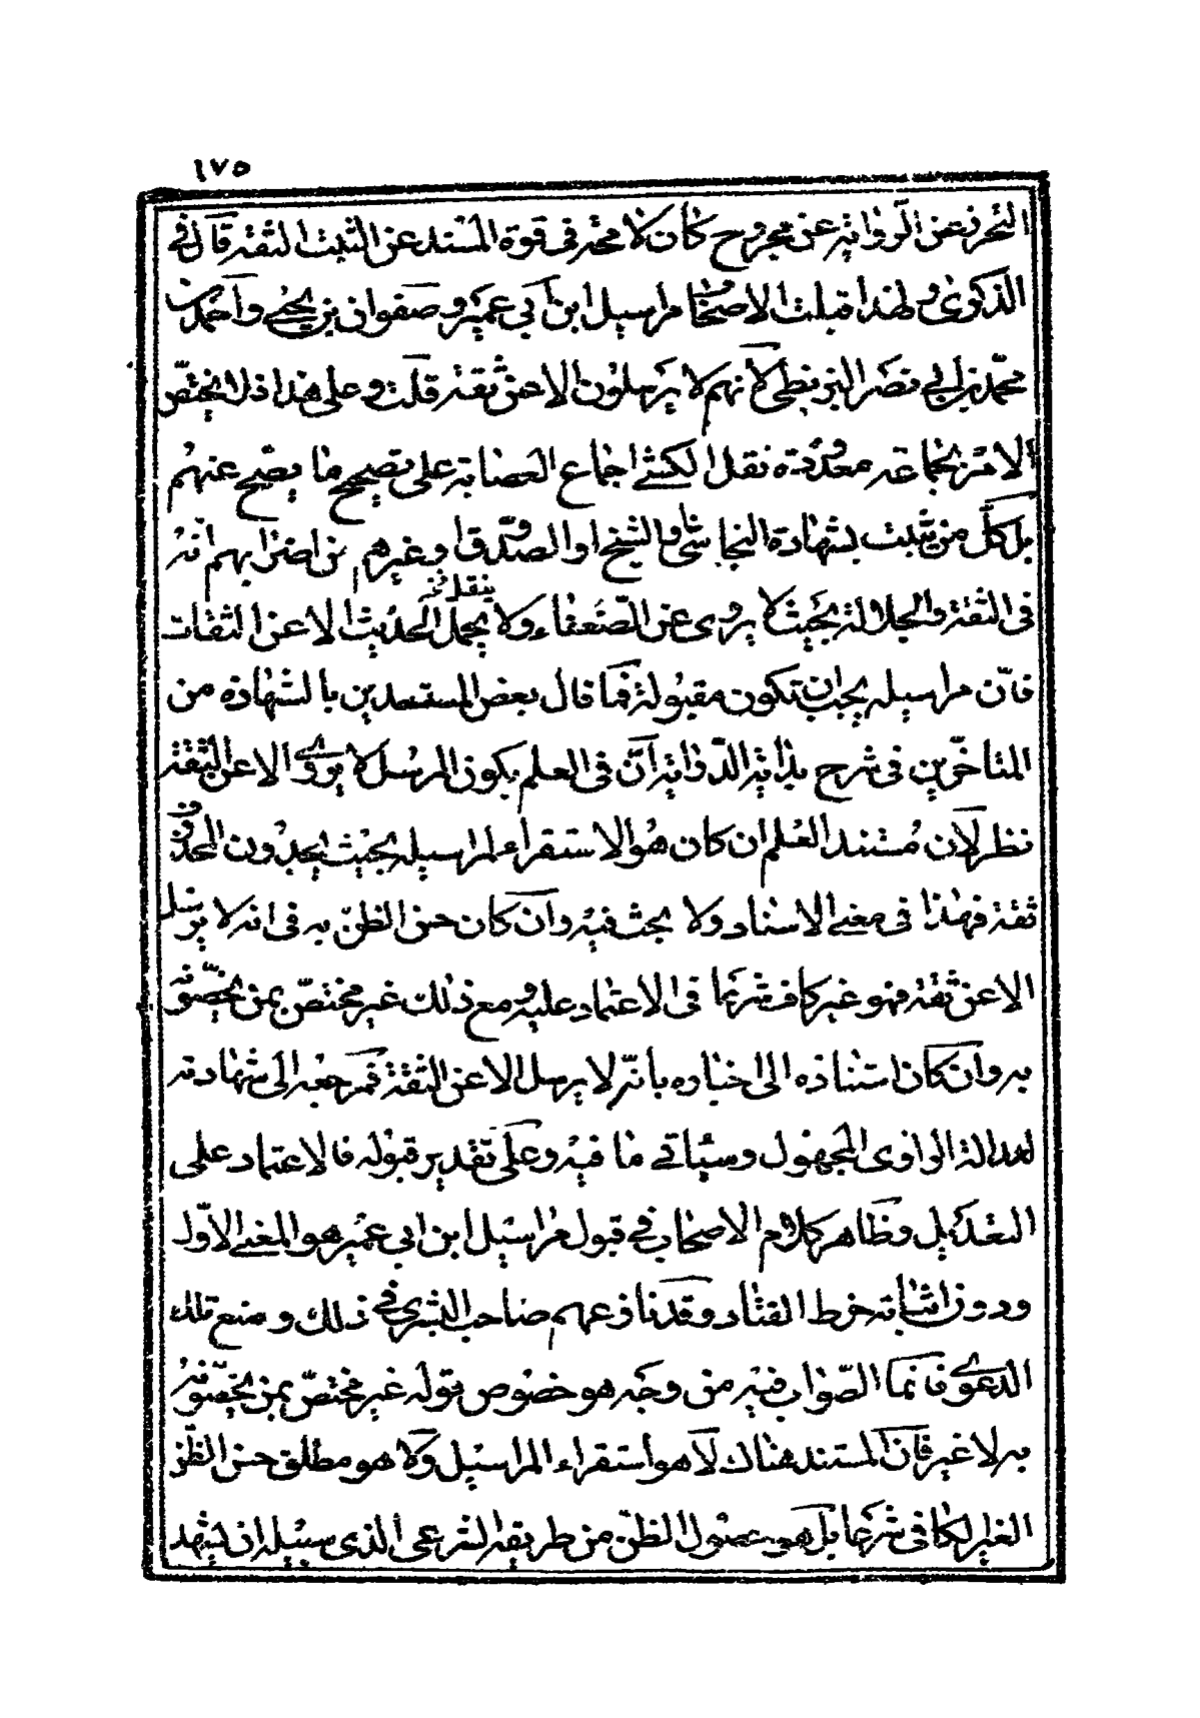 ١٧٥
التحرز عن الرواية عن مجروح كان لا محة في قوة المسند عن الثبت الثقة قال في
الذكرى ولهذا قبلت الاصحاب مراسيل ابن ابي عمير وصفوان بن يحيى واحمد بن
محمد بن ابي نصر البزنطي لأنهم لا يرسلون الا عن ثقة قلت وعلى هذا فلا يختص
الامر بجماعة معدودة نقل الكشي اجماع العصابة على تصحيح ما يصح عنهم
بل كل من يثبت بشهادة النجاشي والشيخ او الصدوق او غيرهم من اضرابهم انه
في الثقة والجلالة بحيث لا يروى عن الضعفاء ولا يحمل الحديث الا عن الثقات
ينقل خ
فان مراسيله يجب ان تكون مقبولة فما قال بعض المستسعدين بالشهادة من
المتاخرين في شرح بداية الدراية ان في العلم بكون المرسل لا يروى الا عن الثقة
نظر لان مستند العلم ان كان هو الاستقراء لمراسيله بحيث يجدون المحذوف
ثقة فهذا في معنى الاسناد ولا بحث فيه وان كان حسن الظن به في انه لا يرسل
الا عن ثقة فهو غير كاف شرعا في الاعتماد عليه ومع ذلك غير مختص بمن يخصونه
به وان كان استناده الى اخباره بانه لا يرسل الا عن الثقة فمرجعه الى شهادته
لعدالة الراوى المجهول وسياتي ما فيه وعلى تقدير قبوله فالاعتماد على
التعديل وظاهر كلام الاصحاب في قبول مراسيل ابن ابي عمير هو المعنى الاول
ودون اثباته خرط القتاد وقد نازعهم صاحب البشرى في ذلك ومنع تلك
الدعوى فانما الصواب فيه من وجه هو خصوص قوله غير مختص بمن يخصونه
به لا غير فان المستند هناك لا هو استقراء المراسيل ولا هو مطلق حسن الظن
الغير الكافي شرعا بل هو حصول الظن من طريقه الشرعي الذى سبيله ان يشهد